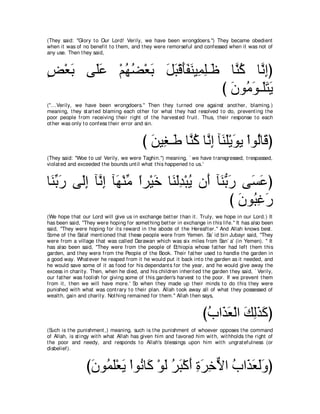 (They said: "Glory to Our Lord! Verily, we have been wrongdoers.'') They became obedient
when it was of no benefit to them, and they were remorseful and confessed when it was not of
any use. Then they said,
إِنَّا كُنَّا ظَـلِمِينَفَأَقْبَلَ بَعْضُهُمْ عَلَى بَعْضٍ
يَتَلَـوَمُونَ )
("...Verily, we have been wrongdoers.'' Then they turned one against another, blaming.)
meaning, they started blaming each other for what they had resolved to do, preventing the
poor people from receiving their right of the harvested fruit. Thus, their response to each
other was only to confess their error and sin.
(قَالُواْ يوَيْلَنَآ إِنَّا كُنَّا طَـغِينَ )
(They said: "Woe to us! Verily, we were Taghin.'') meaning, `we have transgressed, trespassed,
violated and exceeded the bounds until what this happened to us.'
(عَسَى رَبُّنَآ أَن يُبْدِلَنَا خَيْراً مِّنْهَآ إِنَّآ إِلَى رَبِّنَا
رَغِبُونَ )
(We hope that our Lord will give us in exchange better than it. Truly, we hope in our Lord.) It
has been said, "They were hoping for something better in exchange in this life.'' It has also been
said, "They were hoping for its reward in the abode of the Hereafter.'' And Allah knows best.
Some of the Salaf mentioned that these people were from Yemen. Sa`id bin Jubayr said, "They
were from a village that was called Darawan which was six miles from San`a' (in Yemen). '' It
has also been said, "They were from the people of Ethiopia whose father had left them this
garden, and they were from the People of the Book. Their father used to handle the garden in
a good way. Whatever he reaped from it he would put it back into the garden as it needed, and
he would save some of it as food for his dependants for the year, and he would give away the
excess in charity. Then, when he died, and his children inherited the garden they said, `Verily,
our father was foolish for giving some of this garden's harvest to the poor. If we prevent them
from it, then we will have more.' So when they made up their minds to do this they were
punished with what was contrary to their plan. Allah took away all of what they possessed of
wealth, gain and charity. Nothing remained for them.'' Allah then says,
(كَذَلِكَ الْعَذَابُ)
(Such is the punishment,) meaning, such is the punishment of whoever opposes the command
of Allah, is stingy with what Allah has given him and favored him with, withholds the right of
the poor and needy, and responds to Allah's blessings upon him with ungratefulness (or
disbelief).
(وَلَعَذَابُ الاٌّخِرَةِ أَكْبَرُ لَوْ كَانُواْ يَعْلَمُونَ)